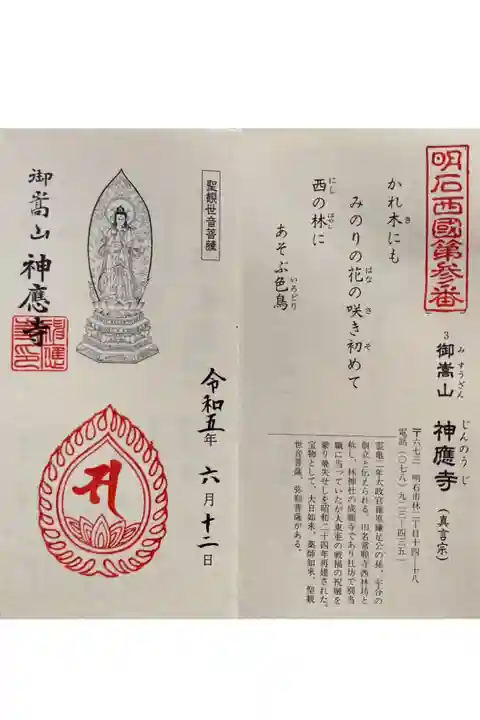 明石西國第參番
3 御嵩山 神應寺 (真言宗)
みすうざん じんのうじ
〒六七三 明石市林二丁目十四-十八
電話(〇七八)
霊亀二年太政官藤原鎌足公の孫、宇合の
創立と伝えられる。旧名常順寺西林坊と
称し、林神社の成願寺であり社坊で別当
職に当っていたが大東亜の戦禍の祝融を
蒙り焼失せしを昭和二十四年再建された。
宝物として、大日如来、薬師如来、聖観
世音菩薩、弥勒菩薩がある。
かれ木にも
みのりの花の咲き初めて
西の林に
あそぶ色鳥
聖観世音菩薩
令和五年 六月十二日
御嵩山 神應寺